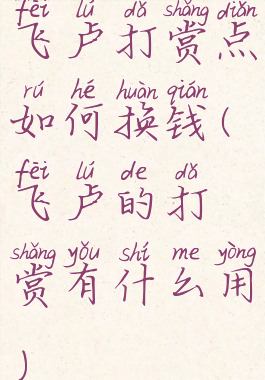 fēi lú dǎ shǎng diǎn
飞卢打赏点
rú hé huàn qián
如何换钱(
fēi lú de dǎ
飞卢的打
shǎng yǒu shí me yòng
赏有什么用
)